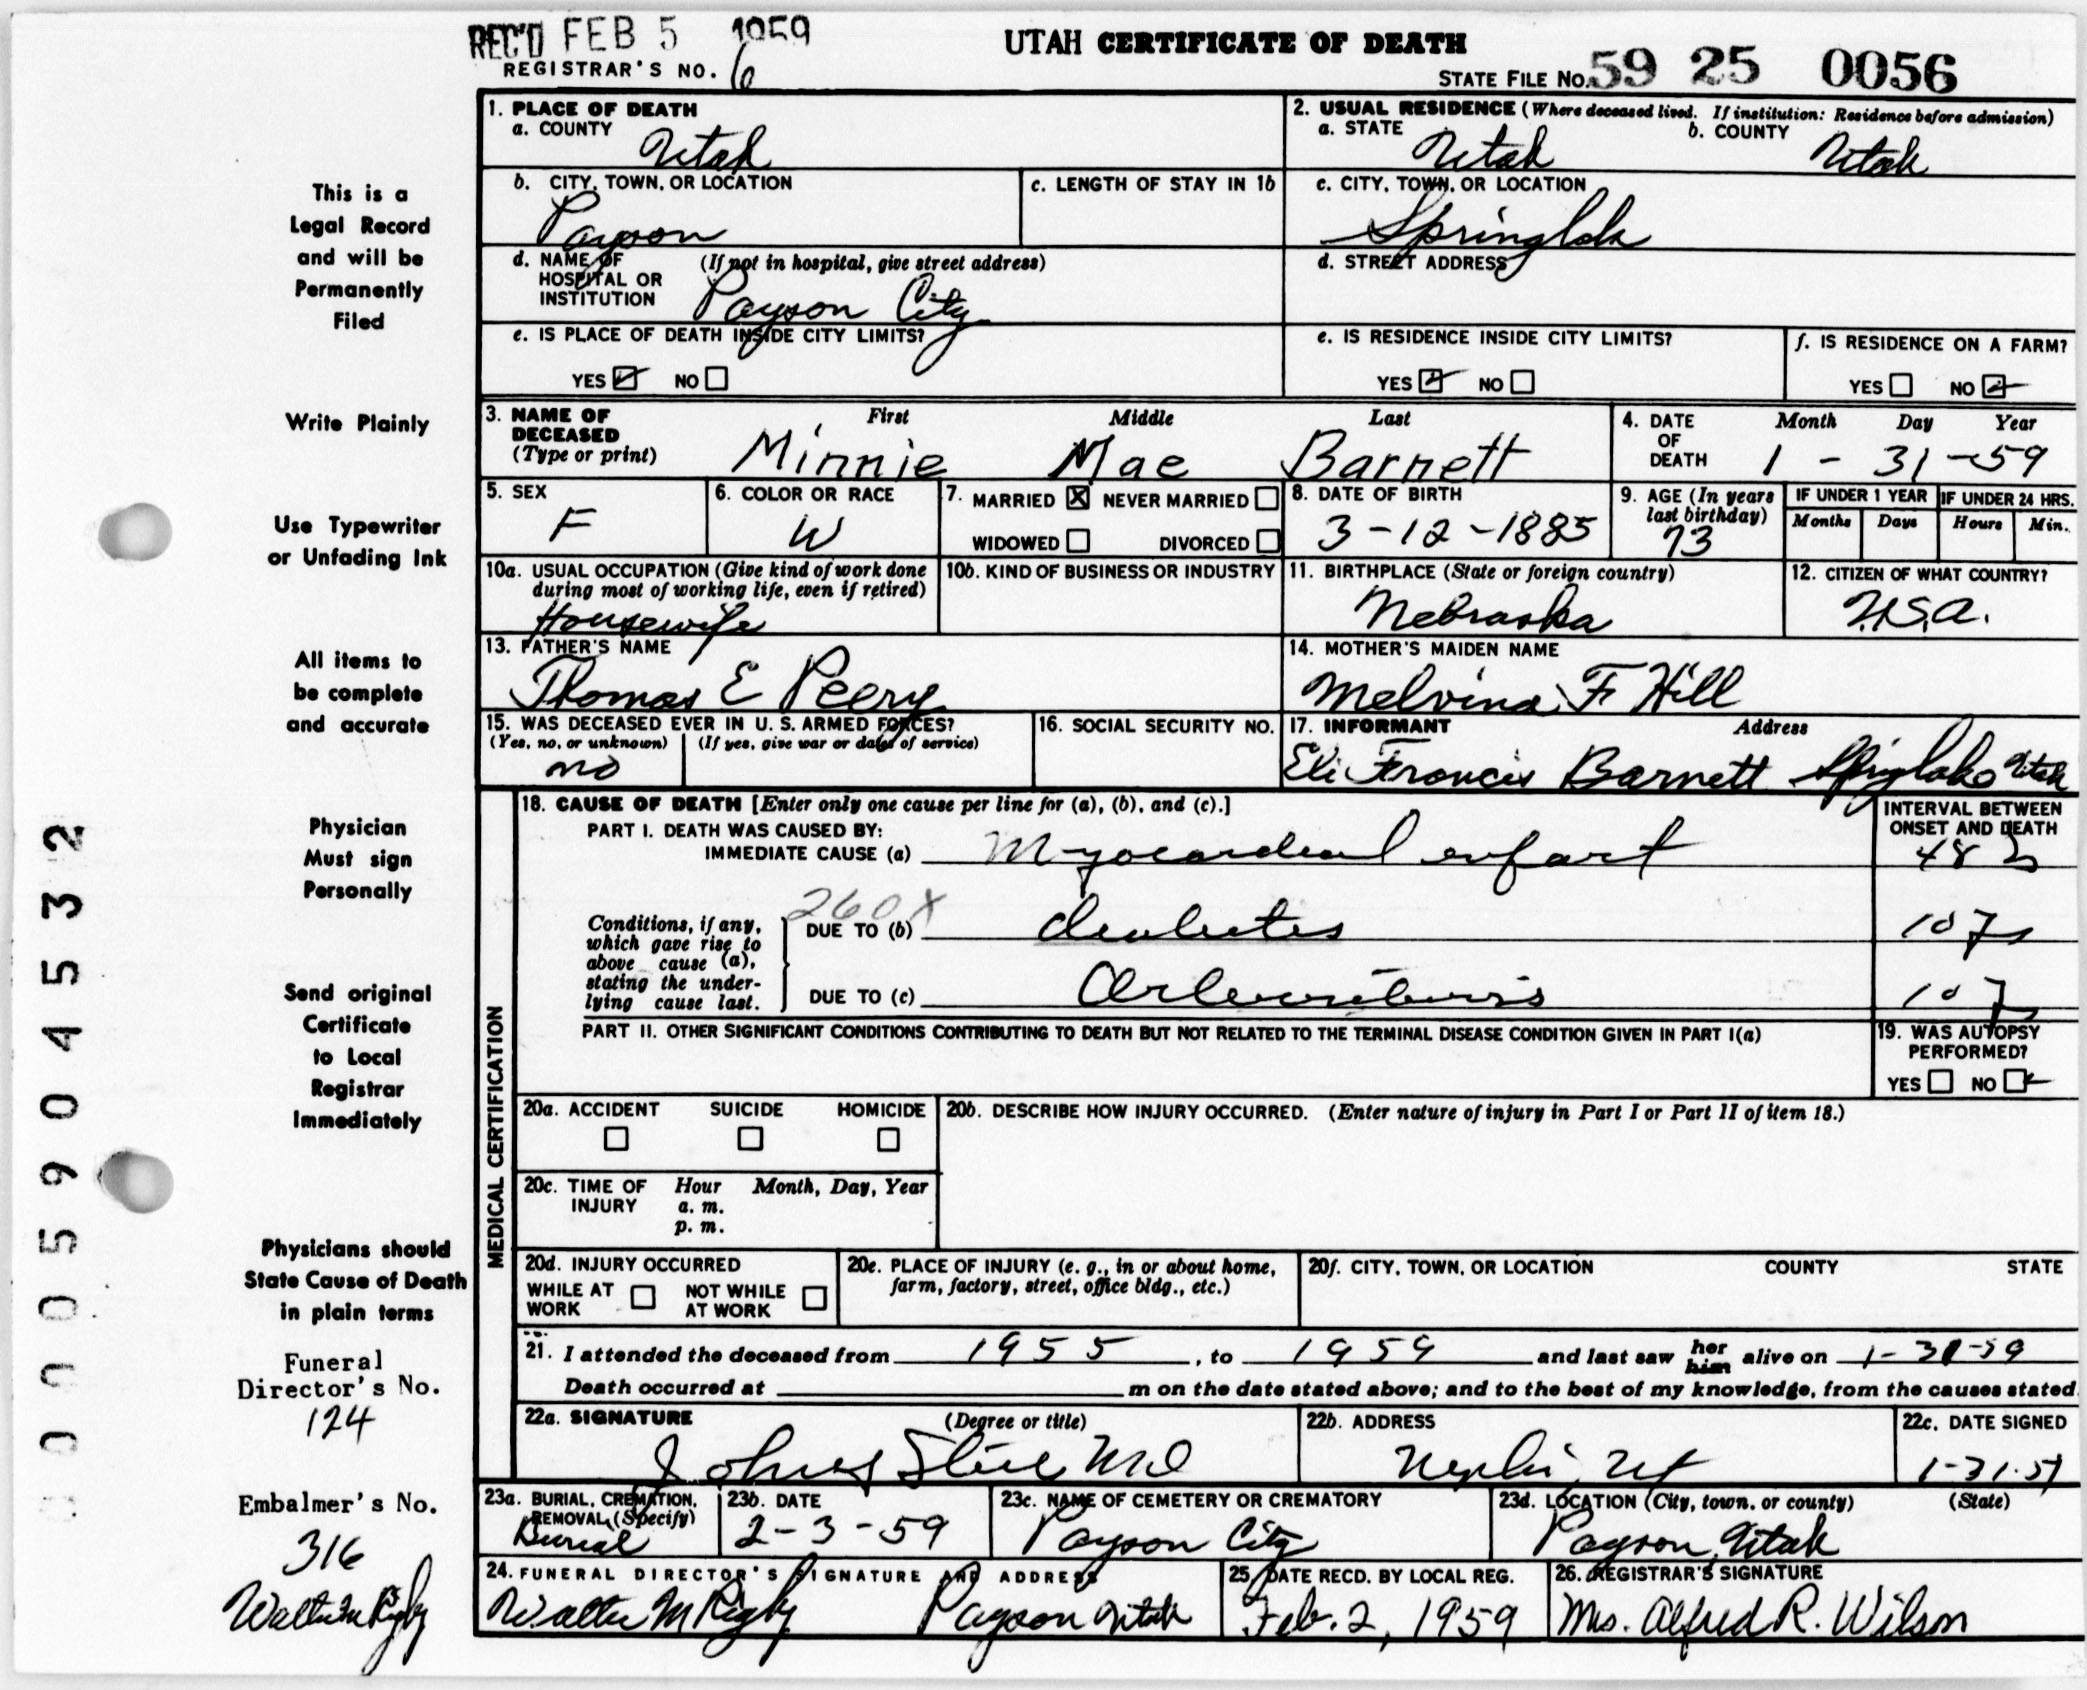 REC'D FEB 5 1959
REGISTRAR'S NO. 6
UTAH CERTIFICATE OF DEATH
STATE FILE NO. 59 25 0056
This is a
Legal Record
and will be
Permanently
Filed
Write Plainly
Use Typewriter
or Unfading Ink
All items to
be complete
and accurate
Physician
Must sign
Personally
Send original
Certificate
to Local
Registrar
Immediately
Physicians should
State Cause of Death
in plain terms
Funeral
Director's No.
124
Embalmer's No.
316
Walter M Rigby
000590 4532
1. PLACE OF DEATH
a. COUNTY Utah
b. CITY, TOWN, OR LOCATION Payson
c. LENGTH OF STAY IN 1b
d. NAME OF HOSPITAL OR INSTITUTION (If not in hospital, give street address) Payson City
e. IS PLACE OF DEATH INSIDE CITY LIMITS?
YES NO
2. USUAL RESIDENCE (Where deceased lived. If institution: Residence before admission)
a. STATE Utah b. COUNTY Utah
c. CITY, TOWN, OR LOCATION Springlak
d. STREET ADDRESS
e. IS RESIDENCE INSIDE CITY LIMITS?
YES NO
f. IS RESIDENCE ON A FARM?
YES NO
3. NAME OF DECEASED (Type or print) First Middle Last
Minnie Mae Barnett
4. DATE OF DEATH Month Day Year
1 - 31 - 59
5. SEX F
6. COLOR OR RACE W
7. MARRIED X NEVER MARRIED
WIDOWED DIVORCED
8. DATE OF BIRTH 3-12-1885
9. AGE (In years last birthday) 73
IF UNDER 1 YEAR Months Days
IF UNDER 24 HRS. Hours Min.
10a. USUAL OCCUPATION (Give kind of work done during most of working life, even if retired)
Housewife
10b. KIND OF BUSINESS OR INDUSTRY
11. BIRTHPLACE (State or foreign country) Nebraska
12. CITIZEN OF WHAT COUNTRY? U.S.A.
13. FATHER'S NAME
Thomas E Peery
14. MOTHER'S MAIDEN NAME
Melvina F Hill
15. WAS DECEASED EVER IN U. S. ARMED FORCES?
(Yes, no, or unknown) (If yes, give war or dates of service)
no
16. SOCIAL SECURITY NO.
17. INFORMANT Address
Eli Francis Barnett Springlake Utah
MEDICAL CERTIFICATION
18. CAUSE OF DEATH [Enter only one cause per line for (a), (b), and (c).]
INTERVAL BETWEEN ONSET AND DEATH
PART I. DEATH WAS CAUSED BY:
IMMEDIATE CAUSE (a) Myocardial infarct 48 h
260X
Conditions, if any, which gave rise to above cause (a), stating the underlying cause last.
DUE TO (b) diabetes 10 y
DUE TO (c) 10 y
PART II. OTHER SIGNIFICANT CONDITIONS CONTRIBUTING TO DEATH BUT NOT RELATED TO THE TERMINAL DISEASE CONDITION GIVEN IN PART I(a)
19. WAS AUTOPSY PERFORMED?
YES NO
20a. ACCIDENT SUICIDE HOMICIDE
20b. DESCRIBE HOW INJURY OCCURRED. (Enter nature of injury in Part I or Part II of item 18.)
20c. TIME OF INJURY Hour Month, Day, Year
a. m.
p. m.
20d. INJURY OCCURRED
WHILE AT WORK NOT WHILE AT WORK
20e. PLACE OF INJURY (e. g., in or about home, farm, factory, street, office bldg., etc.)
20f. CITY, TOWN, OR LOCATION COUNTY STATE
21. I attended the deceased from 1955, to 1959 and last saw her him alive on 1-31-59
Death occurred at m on the date stated above; and to the best of my knowledge, from the causes stated.
22a. SIGNATURE (Degree or title)
MD
22b. ADDRESS
Nephi, Ut
22c. DATE SIGNED
1-31-59
23a. BURIAL, CREMATION, REMOVAL (Specify)
Burial
23b. DATE
2-3-59
23c. NAME OF CEMETERY OR CREMATORY
Payson City
23d. LOCATION (City, town, or county) (State)
Payson, Utah
24. FUNERAL DIRECTOR'S SIGNATURE AND ADDRESS
Walter M Rigby Payson Utah
25. DATE RECD. BY LOCAL REG.
Feb. 2, 1959
26. REGISTRAR'S SIGNATURE
Mrs. Alfred R. Wilson